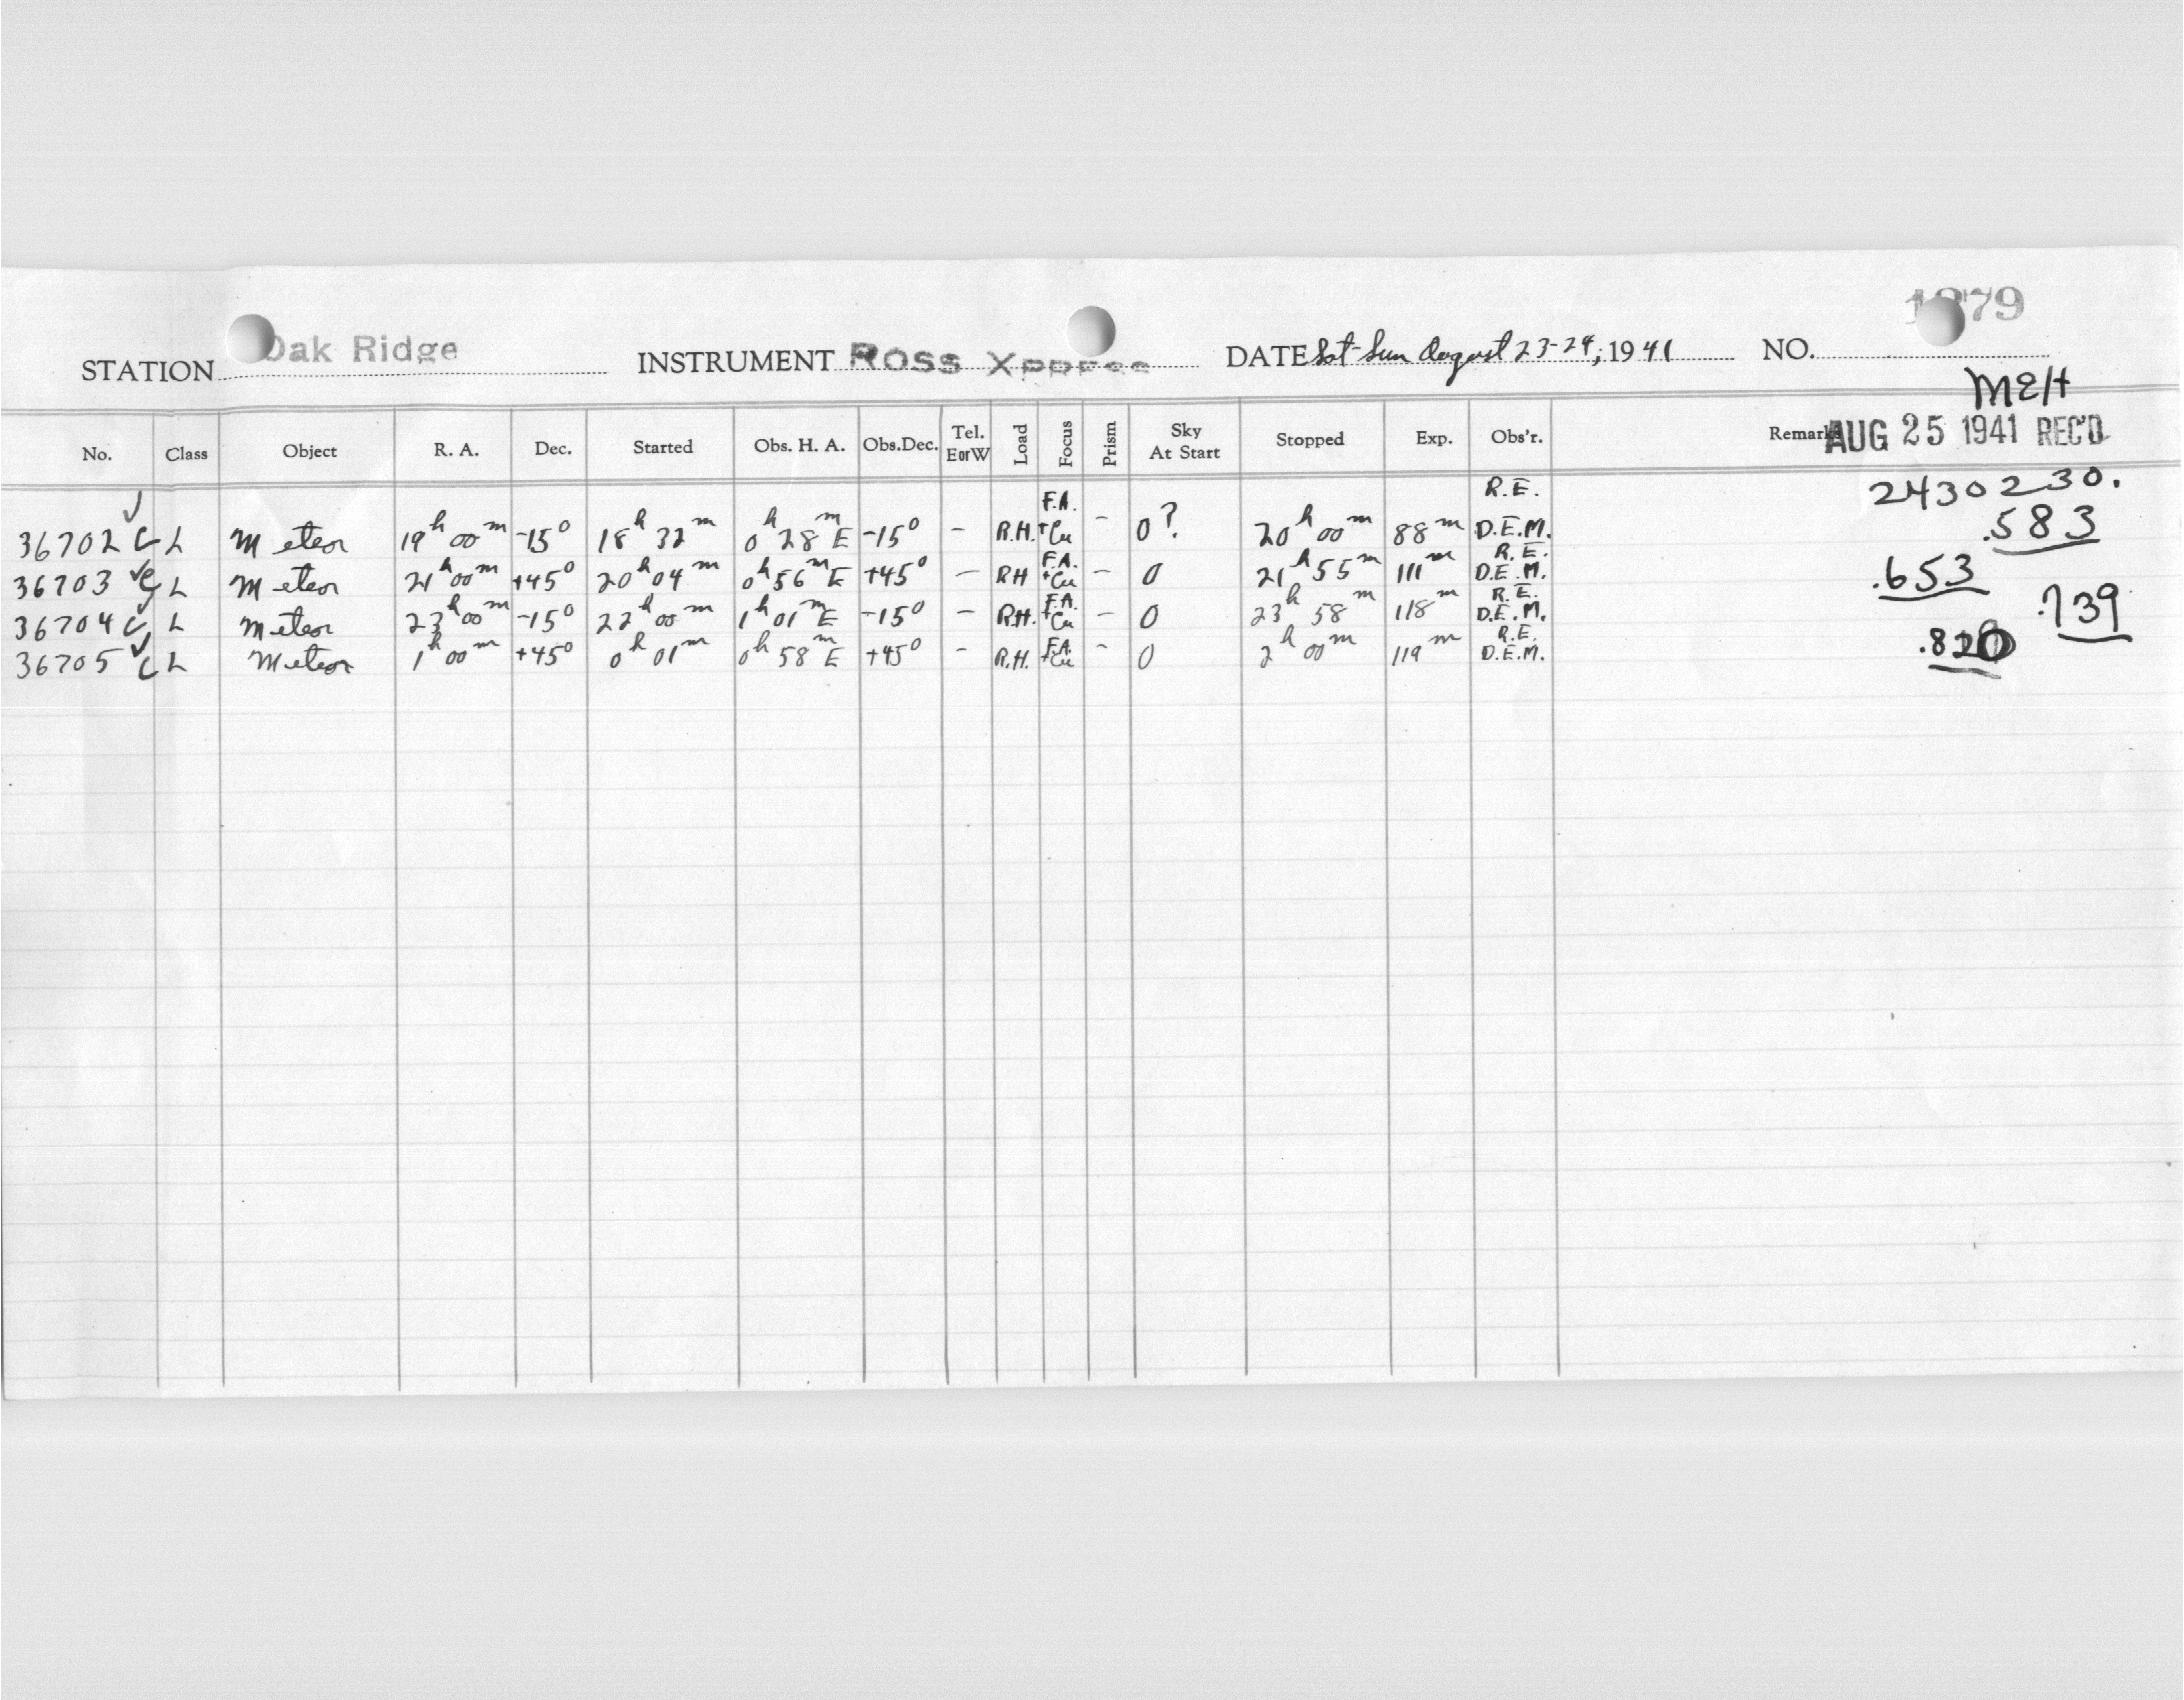 1879
STATION Oak Ridge INSTRUMENT Ross Xpress DATE Sat-Sun August 23-24, 1941 NO.
MEH
No. Class Object R. A. Dec. Started Obs. H. A. Obs.Dec. Tel. EorW Load Focus Prism Sky At Start Stopped Exp. Obs'r. Remarks
AUG 25 1941 REC'D
2430230.
36702 ✓ C L Meteor 19h 00m -15° 18h 32m 0h 28m E -15° – R.H. F.A. +Cu – 0? 20h 00m 88m R.E. D.E.M. .583
36703 ✓ C L Meteor 21h 00m +45° 20h 04m 0h 56m E +45° – RH F.A. +Cu – 0 21h 55m 111m R.E. D.E.M. .653
36704 ✓ C L Meteor 23h 00m -15° 22h 00m 1h 01m E -15° – R.H. F.A. +Cu – 0 23h 58m 118m R.E. D.E.M. .739
36705 ✓ C L Meteor 1h 00m +45° 0h 01m 0h 58m E +45° – R.H. F.A. +Cu – 0 2h 00m 119m R.E. D.E.M. .820